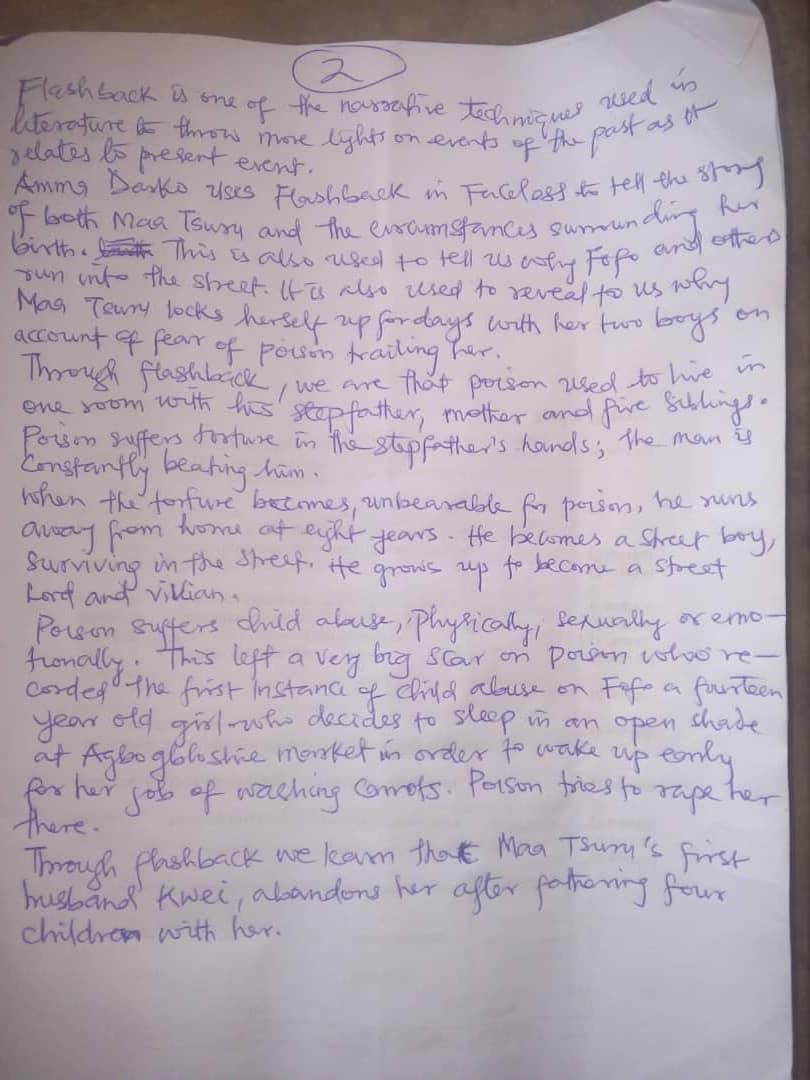 2
Flashback is one of the narrative techniques used in
literature to throw more lights on events of the past as it
relates to present event.
Amma Darko uses Flashback in Faceless to tell the story
of both Maa Tsuru and the circumstances surrounding her
birth. This is also used to tell us why Fofo and others
run into the street. It is also used to reveal to us why
Maa Tsuru locks herself up for days with her two boys on
account of fear of poison trailing her.
Through flashback, we are that poison used to live in
one room with his stepfather, mother and five siblings.
Poison suffers torture in the stepfather's hands; the man is
Constantly beating him.
When the torture becomes unbearable for poison, he runs
away from home at eight years. He becomes a street boy,
Surviving in the street. He grows up to become a street
Lord and villian.
Poison suffers child abuse, physically, sexually or emo-
tionally. This left a very big scar on poison who re-
corded the first instance of child abuse on Fofo a fourteen
year old girl who decides to sleep in an open shade
at Agbogbloshie market in order to wake up early
for her job of washing carrots. Poison tries to rape her
there.
Through flashback we learn that Maa Tsuru's first
husband Kwei, abandons her after fathering four
children with her.